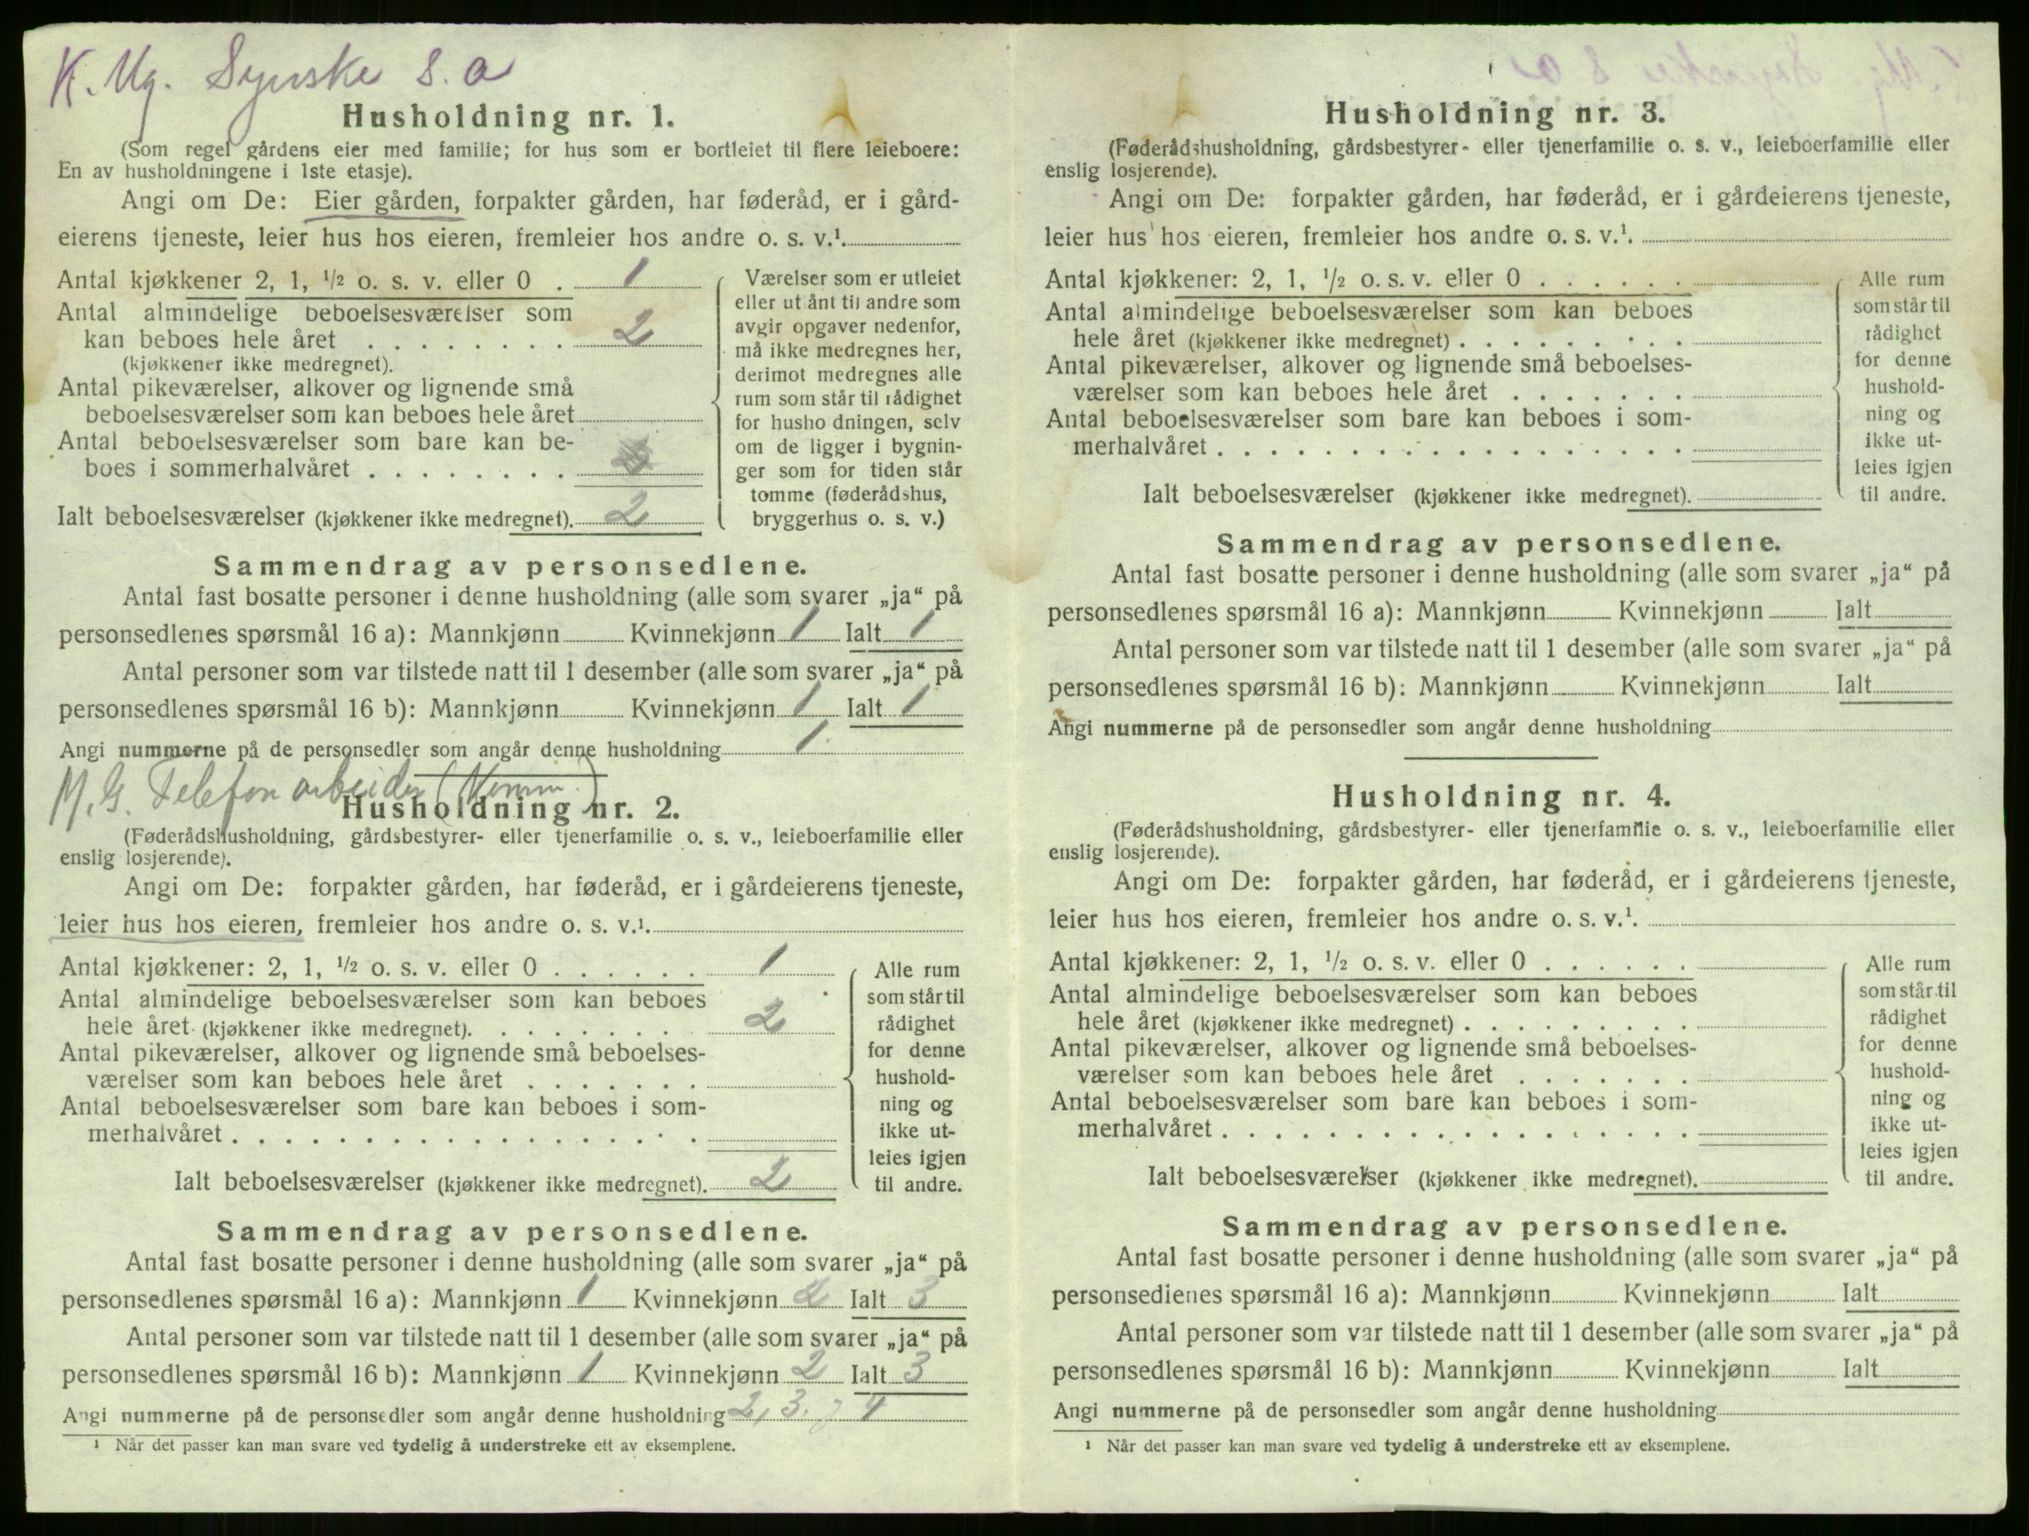 K. Ug. Syerske S. a
Husholdning nr. 1.
(Som regel gårdens eier med familie; for hus som er bortleiet til flere leieboere:
En av husholdningene i 1ste etasje).
Angi om De: Eier gården, forpakter gården, har føderåd, er i gård-
eierens tjeneste, leier hus hos eieren, fremleier hos andre o. s. v.¹.
Antal kjøkkener 2, 1, ½ o. s. v. eller 0 . 1
Antal almindelige beboelsesværelser som
kan beboes hele året . . . . . . . . 2
(kjøkkener ikke medregnet).
Antal pikeværelser, alkover og lignende små
beboelsesværelser som kan beboes hele året
Antal beboelsesværelser som bare kan be-
boes i sommerhalvåret . . . . . . .
Ialt beboelsesværelser (kjøkkener ikke medregnet). 2
Værelser som er utleiet
eller ut ånt til andre som
avgir opgaver nedenfor,
må ikke medregnes her,
derimot medregnes alle
rum som står til rådighet
for husho dningen, selv
om de ligger i bygnin-
ger som for tiden står
tomme (føderådshus,
bryggerhus o. s. v.)
Sammendrag av personsedlene.
Antal fast bosatte personer i denne husholdning (alle som svarer „ja“ på
personsedlenes spørsmål 16 a): Mannkjønn Kvinnekjønn 1 Ialt 1
Antal personer som var tilstede natt til 1 desember (alle som svarer „ja“ på
personsedlenes spørsmål 16 b): Mannkjønn Kvinnekjønn 1 Ialt 1
Angi nummerne på de personsedler som angår denne husholdning 1.
M. G. Telefonarbeider
Husholdning nr. 2.
(Føderådshusholdning, gårdsbestyrer- eller tjenerfamilie o. s. v., leieboerfamilie eller
enslig losjerende).
Angi om De: forpakter gården, har føderåd, er i gårdeierens tjeneste,
leier hus hos eieren, fremleier hos andre o. s. v.¹.
Antal kjøkkener: 2, 1, ½ o. s. v. eller 0 . . . . . . 1
Antal almindelige beboelsesværelser som kan beboes
hele året (kjøkkener ikke medregnet). . . . . . . . 2
Antal pikeværelser, alkover og lignende små beboelses-
værelser som kan beboes hele året . . . . . . .
Antal beboelsesværelser som bare kan beboes i som-
merhalvåret . . . . . . . . . . . . . . . . . .
Ialt beboelsesværelser (kjøkkener ikke medregnet). 2
Alle rum
som står til
rådighet
for denne
hushold-
ning og
ikke ut-
leies igjen
til andre.
Sammendrag av personsedlene.
Antal fast bosatte personer i denne husholdning (alle som svarer „ja“ på
personsedlenes spørsmål 16 a): Mannkjønn 1 Kvinnekjønn 2 Ialt 3
Antal personer som var tilstede natt til 1 desember (alle som svarer „ja“ på
personsedlenes spørsmål 16 b): Mannkjønn 1 Kvinnekjønn 2 Ialt 3
Angi nummerne på de personsedler som angår denne husholdning 2, 3. g 4
¹ Når det passer kan man svare ved tydelig å understreke ett av eksemplene.
Husholdning nr. 3.
(Føderådshusholdning, gårdsbestyrer- eller tjenerfamilie o. s. v., leieboerfamilie eller
enslig losjerende).
Angi om De: forpakter gården, har føderåd, er i gårdeierens tjeneste,
leier hus hos eieren, fremleier hos andre o. s. v.¹.
Antal kjøkkener: 2, 1, ½ o. s. v. eller 0 . . . . . .
Antal almindelige beboelsesværelser som kan beboes
hele året (kjøkkener ikke medregnet) . . . . . . . . .
Antal pikeværelser, alkover og lignende små beboelses-
værelser som kan beboes hele året . . . . . . .
Antal beboelsesværelser som bare kan beboes i som-
merhalvåret . . . . . . . . . . . . . . . . . .
Ialt beboelsesværelser (kjøkkener ikke medregnet).
Alle rum
som står til
rådighet
for denne
hushold-
ning og
ikke ut-
leies igjen
til andre.
Sammendrag av personsedlene.
Antal fast bosatte personer i denne husholdning (alle som svarer „ja“ på
personsedlenes spørsmål 16 a): Mannkjønn Kvinnekjønn Ialt
Antal personer som var tilstede natt til 1 desember (alle som svarer „ja“ på
personsedlenes spørsmål 16 b): Mannkjønn Kvinnekjønn Ialt
Angi nummerne på de personsedler som angår denne husholdning
Husholdning nr. 4.
(Føderådshusholdning, gårdsbestyrer- eller tjenerfamilie o. s. v., leieboerfamilie eller
enslig losjerende).
Angi om De: forpakter gården, har føderåd, er i gårdeierens tjeneste,
leier hus hos eieren, fremleier hos andre o. s. v.¹.
Antal kjøkkener: 2, 1, ½ o. s. v. eller 0 . . . . . .
Antal almindelige beboelsesværelser som kan beboes
hele året (kjøkkener ikke medregnet) . . . . . . . . .
Antal pikeværelser, alkover og lignende små beboelses-
værelser som kan beboes hele året . . . . . . .
Antal beboelsesværelser som bare kan beboes i som-
merhalvåret . . . . . . . . . . . . . . . . . .
Ialt beboelsesværelser (kjøkkener ikke medregnet).
Alle rum
som står til
rådighet
for denne
hushold-
ning og
ikke ut-
leies igjen
til andre.
Sammendrag av personsedlene.
Antal fast bosatte personer i denne husholdning (alle som svarer „ja“ på
personsedlenes spørsmål 16 a): Mannkjønn Kvinnekjønn Ialt
Antal personer som var tilstede natt til 1 desember (alle som svarer „ja“ på
personsedlenes spørsmål 16 b): Mannkjønn Kvinnekjønn Ialt
Angi nummerne på de personsedler som angår denne husholdning
¹ Når det passer kan man svare ved tydelig å understreke ett av eksemplene.